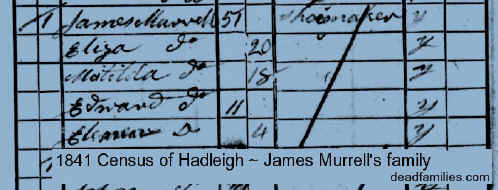 1 James Murrell 51 Shoemaker y
Eliza Do 20 y
Matilda Do 18 y
Edward Do 11 y
Do 4 y
1841 Census of Hadleigh ~ James Murrell's family
deadfamilies.com